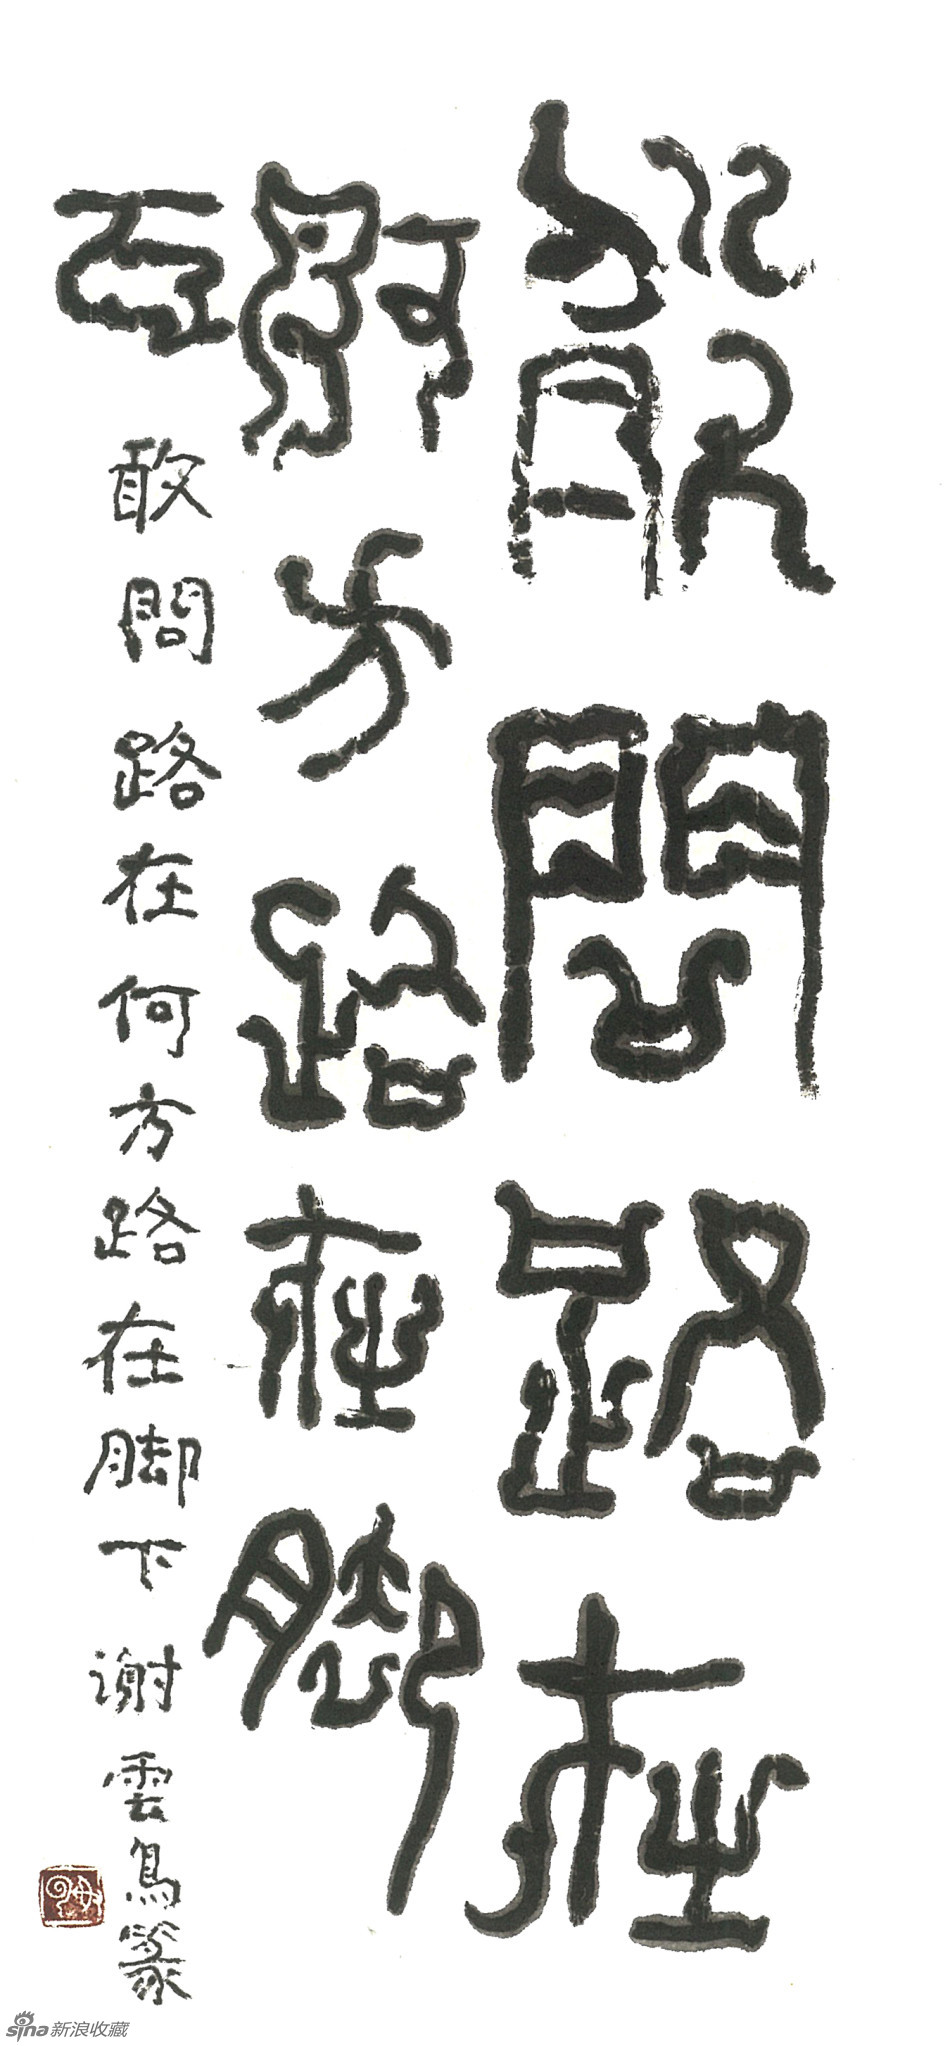 敢問路在
何方路在脚
下
敢問路在何方路在脚下谢雲鳥篆
sina新浪收藏